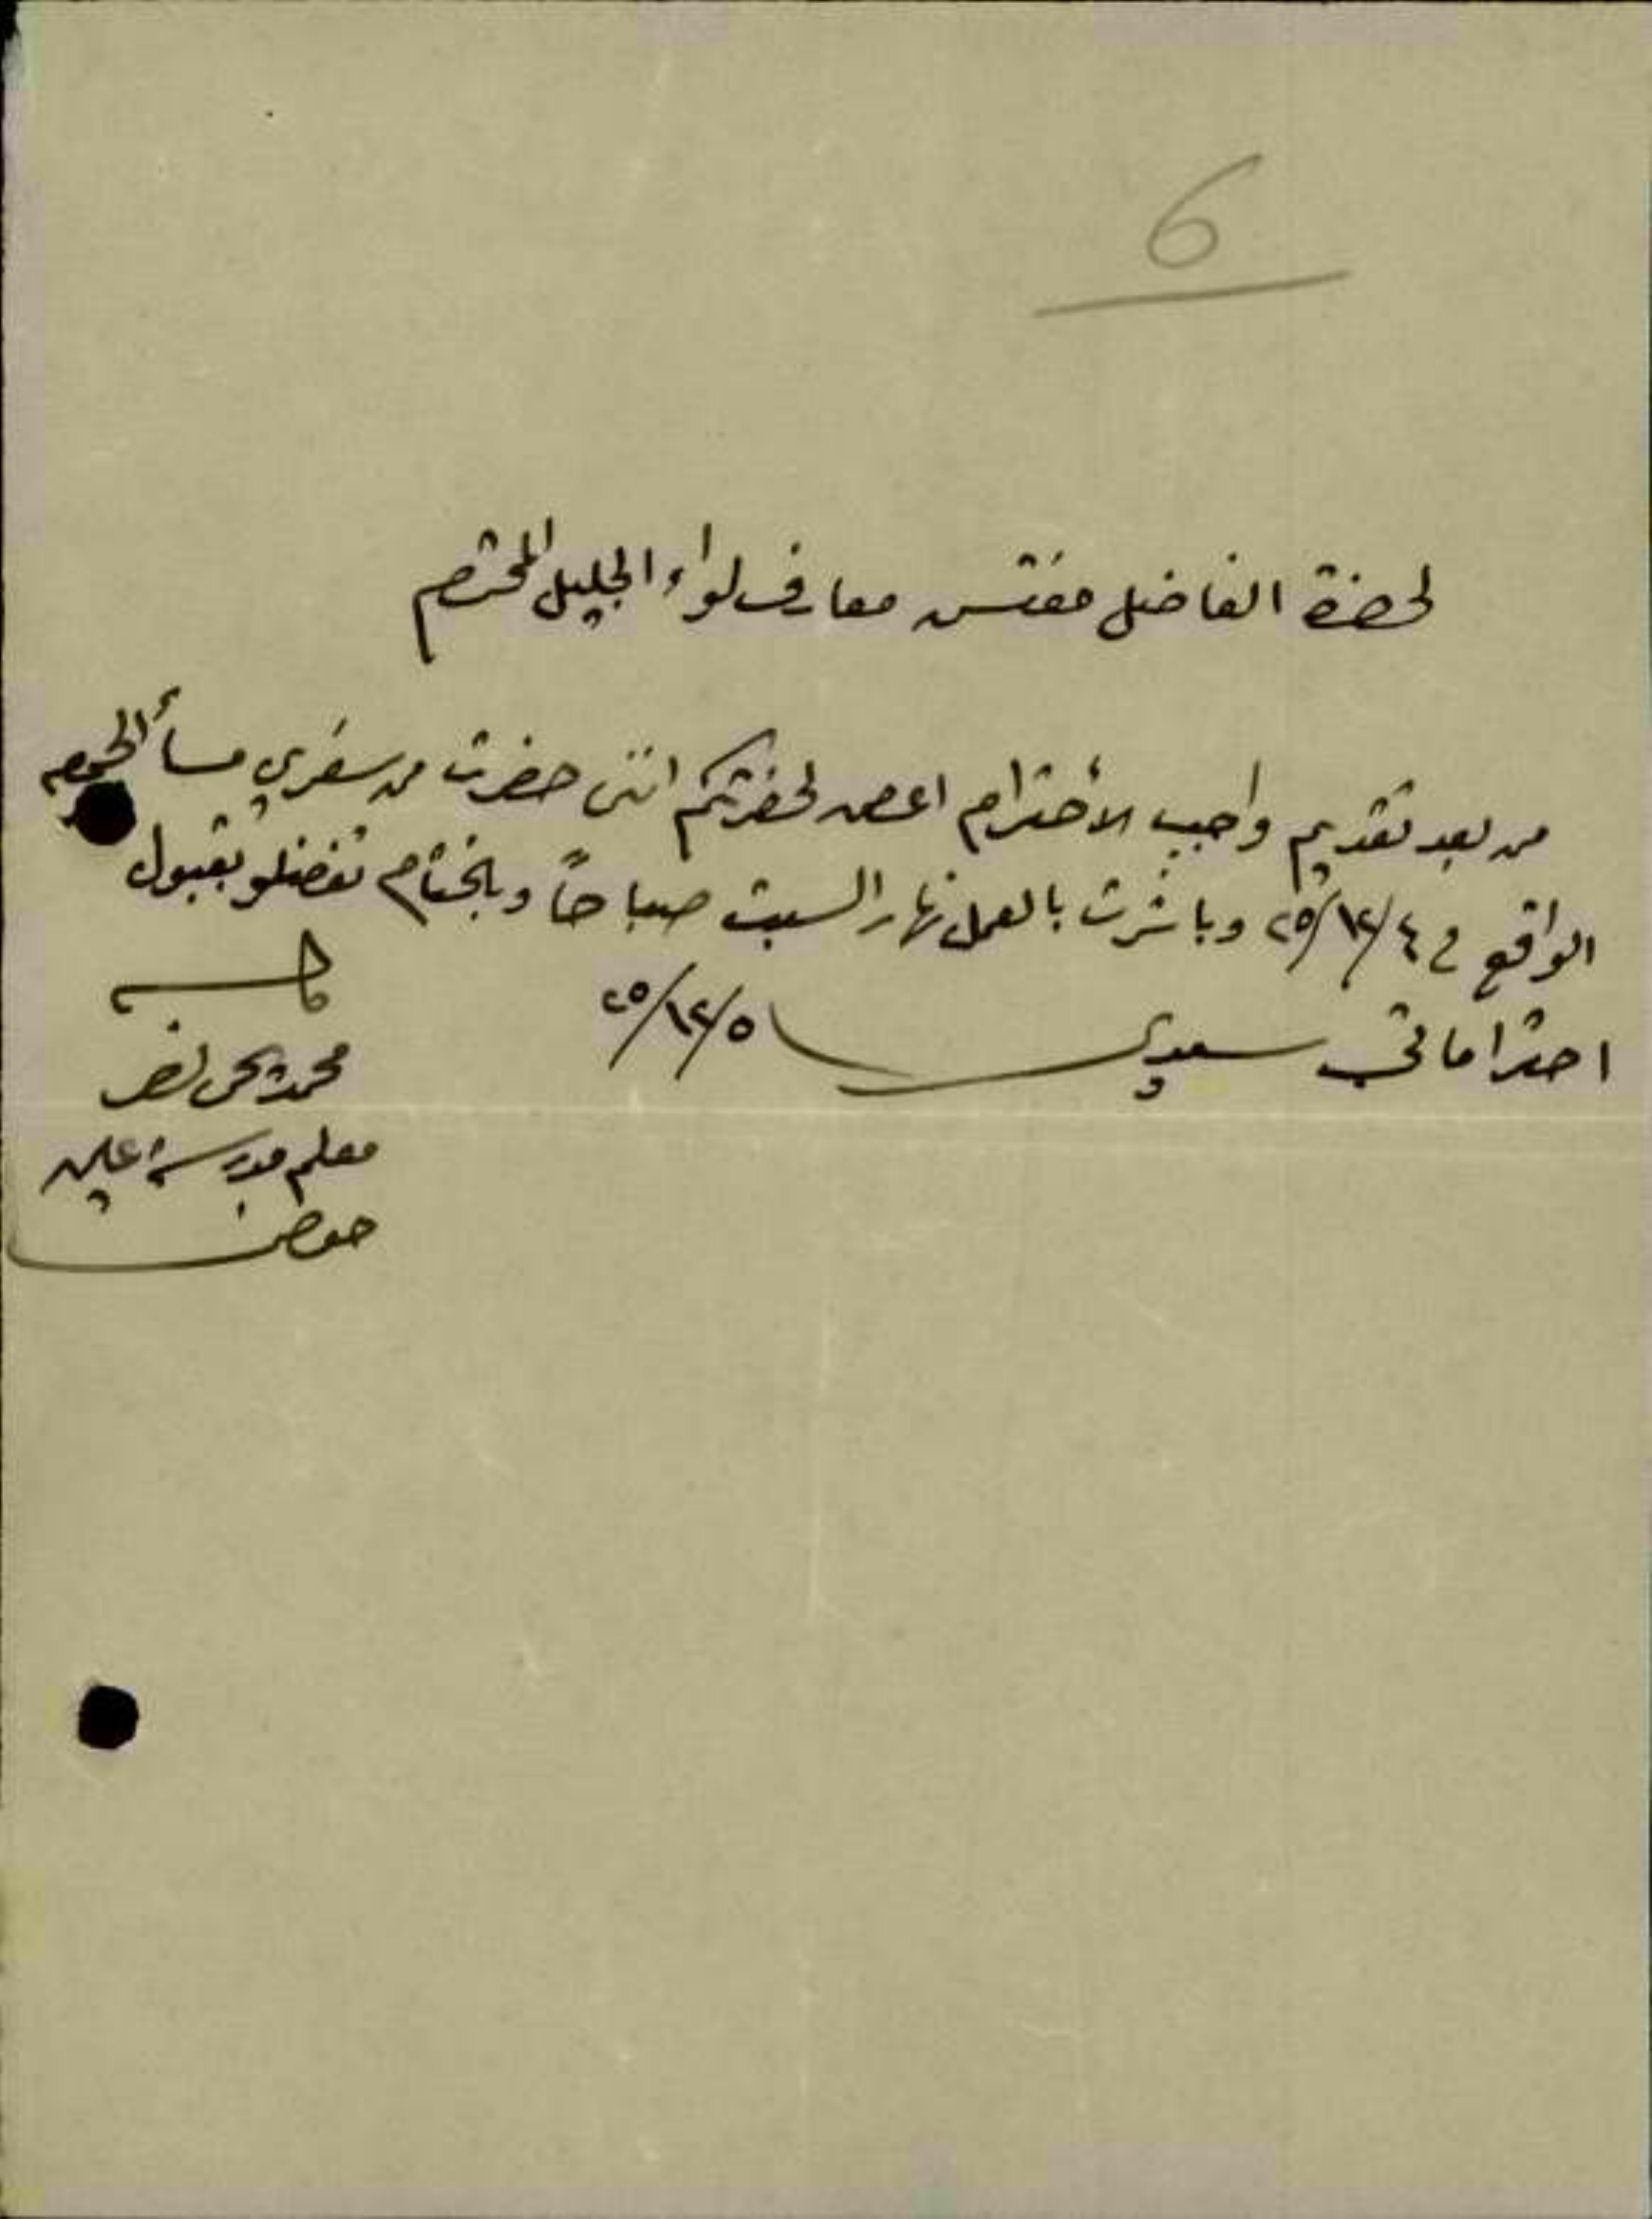 6
لحضرة الفاضل مفتش معارف لواء الجليل المحترم
من بعد تقديم واجب الأحترام اعرض لحضرتكم انني حضرت من سفري مساء الجمعه
الواقع في ٢٥/١٢/٤ وباشرت بالعمل نهار السبت صباحاً وبالختام تفضلو بقبول
احتراماتي سيدي ٢٥/١٢/٥
محمد نصر
معلم مدرسة عين
حوض